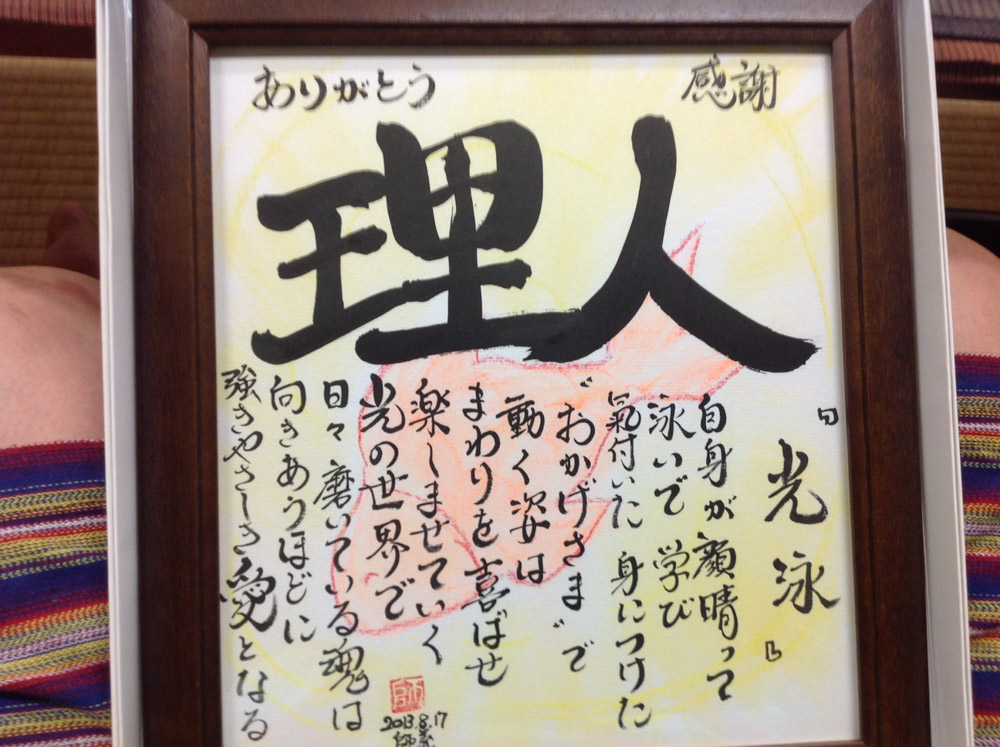 ありがとう 感謝
理人
「光泳」
自身が顔晴って
泳いで 学び
氣付いた 身につけた
"おかげさま"で
動く姿は
まわりを喜ばせ
楽しませていく
光の世界で
日々 磨いている魂は
向きあうほどに
強きやさしき愛となる
2013.8.17